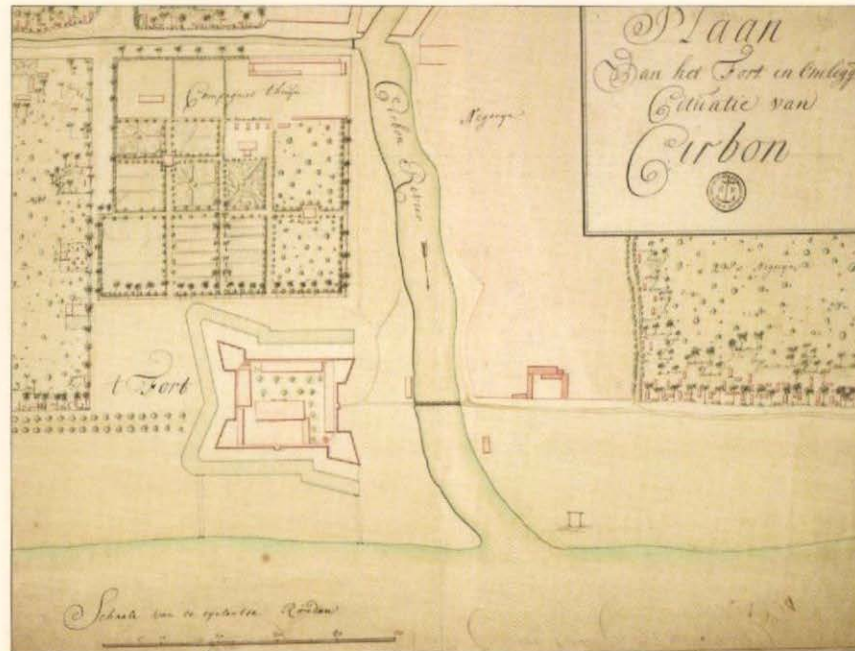 Plaan
Van het Fort en Omlegg
Cituatie van
Cirbon
Compagnies thuijn
Cirbon Rivier
Negorije
Negorije
't Fort
Schaale van Rooden